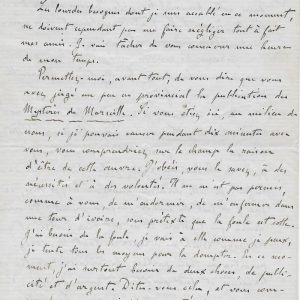 La lourde besogne dont je suis accablé en ce moment,
ne doivent cependant pas me faire négliger tout à fait
mes amis. Je vais tâcher de vous consacrer une heure
de mon temps.
Permettez-moi, avant tout, de vous dire que vous
avez jugé un peu en provincial la publication des
Mystères de Marseille. Si vous étiez ici, au milieu de
nous, si je pouvais causer pendant dix minutes avec
vous, vous comprendriez sur le champ la raison
d'être de cette œuvre. J'obéis, vous le savez, à des
nécessités et à des volontés. Il ne m'est pas permis,
comme à vous, de m'endormir, de m'enfermer dans
une tour d'ivoire, sous prétexte que la foule est sotte.
J'ai besoin de la foule, je vais à elle comme je peux,
je tente tous les moyens pour la dompter. En ce mo-
ment, j'ai surtout besoin de deux choses, de publi-
cité et d'argent. Dites-vous cela, et vous com-